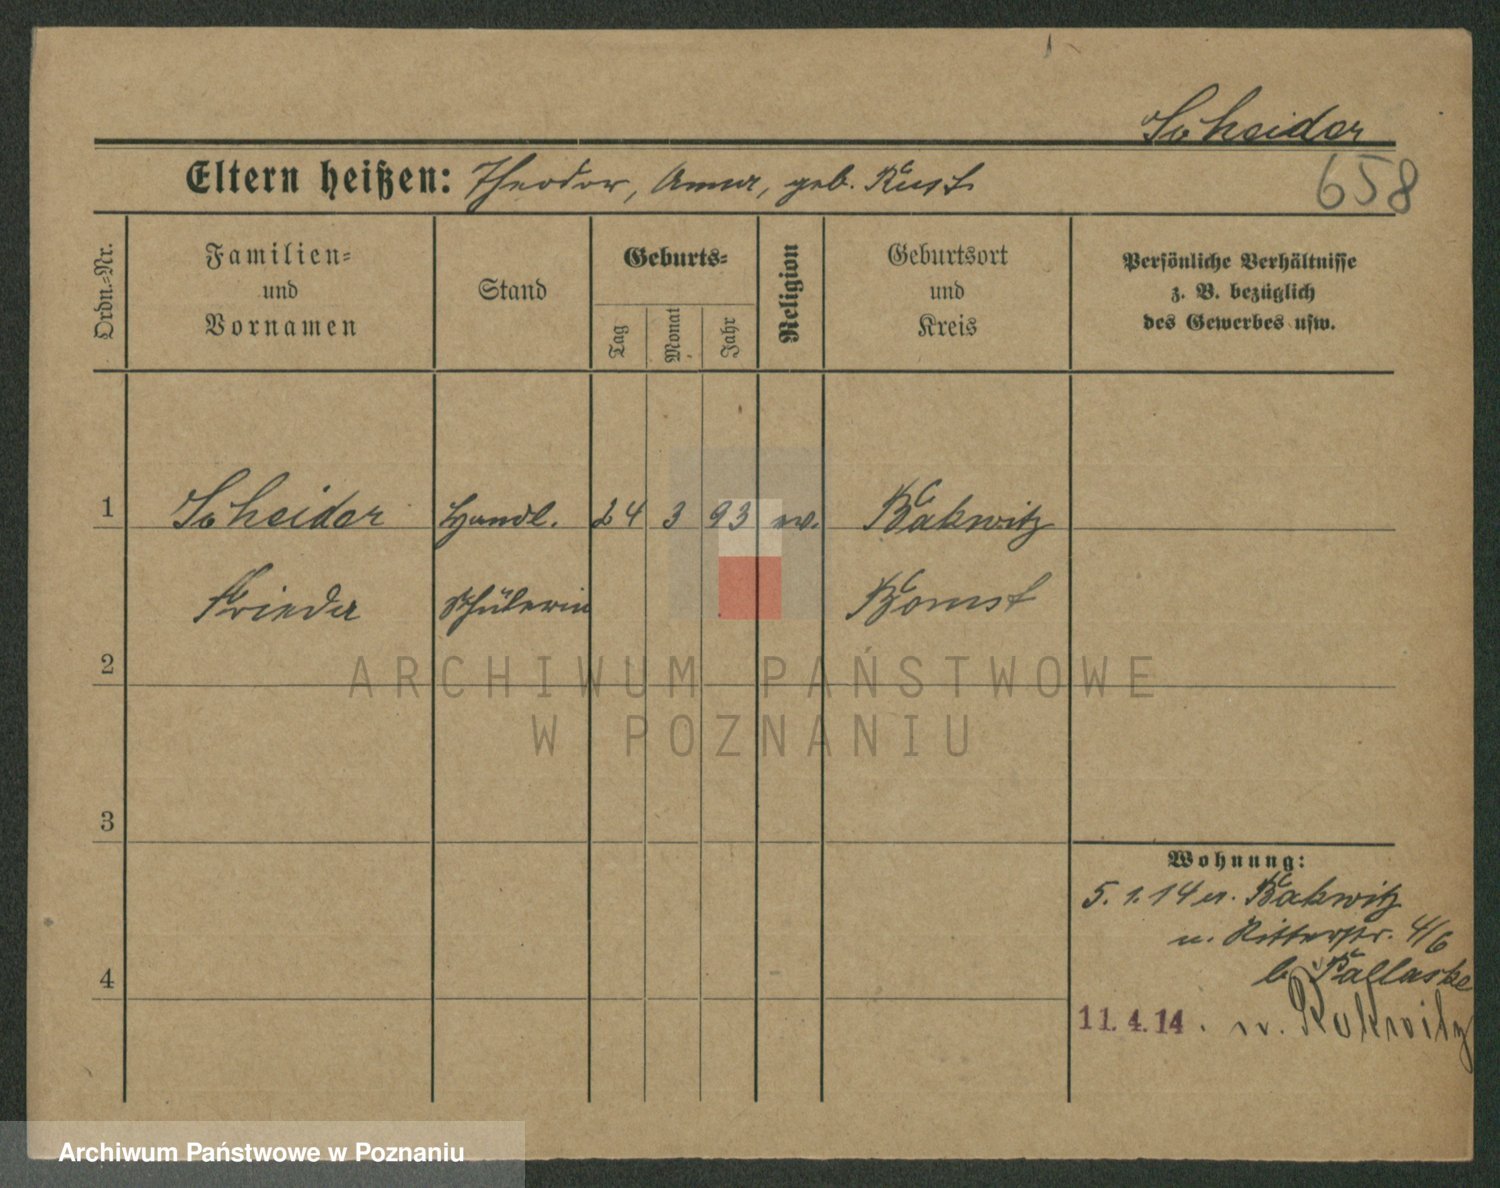 Scheider
658
Eltern heißen: Theodor, Anna, geb. Rust
Ordn.=Nr.
Familien=
und
Vornamen
Stand
Geburts=
Tag
Monat
Jahr
Religion
Geburtsort
und
Kreis
Persönliche Verhältnisse
z. B. bezüglich
des Gewerbes usw.
1 Scheider Handl. 24 3 93 ev. Rakwitz
Frieda schülerin Bomst
2
3
4
Wohnung:
5. 1. 14 v. Rakwitz
n. Ritterstr. 4/6
b. Pallaske
11.4.14. n. Rakwitz
ARCHIWUM PAŃSTWOWE
W POZNANIU
Archiwum Państwowe w Poznaniu